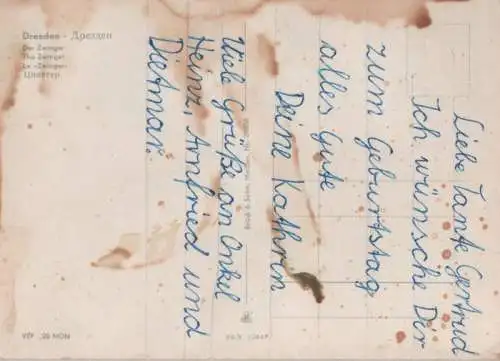 Dresden - Дрезден
Der Zwinger
The Zwinger
Le «Zwinger»
Цвингер
Liebe Tante Gertrud
Ich wünsche Dir
zum Geburtstag
alles Gute
Deine Kathrin
Viele Grüße an Onkel
Heinz, Arnfried und
Dietmar.